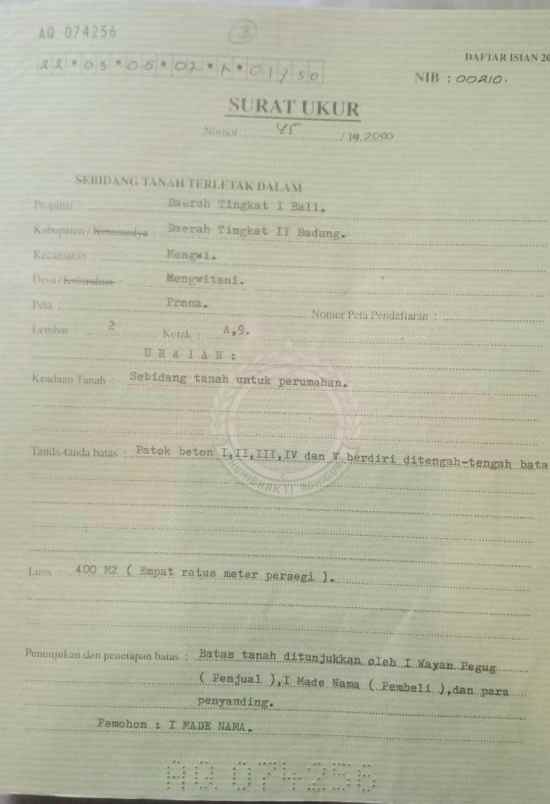 AQ 074256
3
DAFTAR ISIAN 20
22*03*06*02*1*01/50
NIB : 00210.
SURAT UKUR
Nomor : 45 / 14.2000
SEBIDANG TANAH TERLETAK DALAM
Propinsi : Daerah Tingkat I Bali.
Kabupaten / Kotamadya : Daerah Tingkat II Badung.
Kecamatan : Mengwi.
Desa / Kelurahan : Mengwitani.
Peta : Prona.
Nomor Peta Pendaftaran :
Lembar : 2 Kotak : A,9.
URAIAN :
Keadaan Tanah : Sebidang tanah untuk perumahan.
Tanda-tanda batas : Patok beton I,II,III,IV dan V berdiri ditengah-tengah bata
Luas : 400 M2 ( Empat ratus meter persegi ).
Penunjukan dan penetapan batas : Batas tanah ditunjukkan oleh I Wayan Pegug
( Penjual ),I Made Nama ( Pembeli ),dan para
penyanding.
Pemohon : I MADE NAMA.
AQ 074256